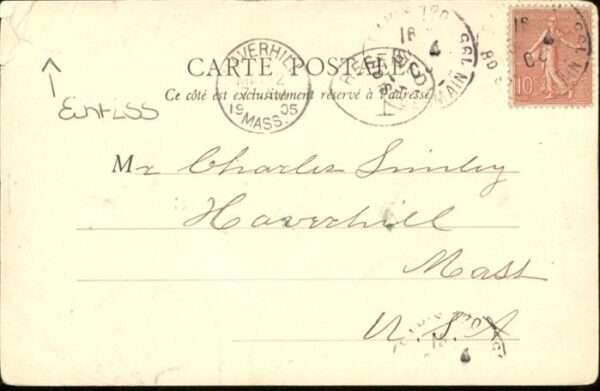 CARTE POSTALE
Ce côté est exclusivement réservé à l'adresse
HAVERHILL
1905
MASS.
10
Einriss
Mr Charles Smiley
Haverhill
Mass
U.S.A